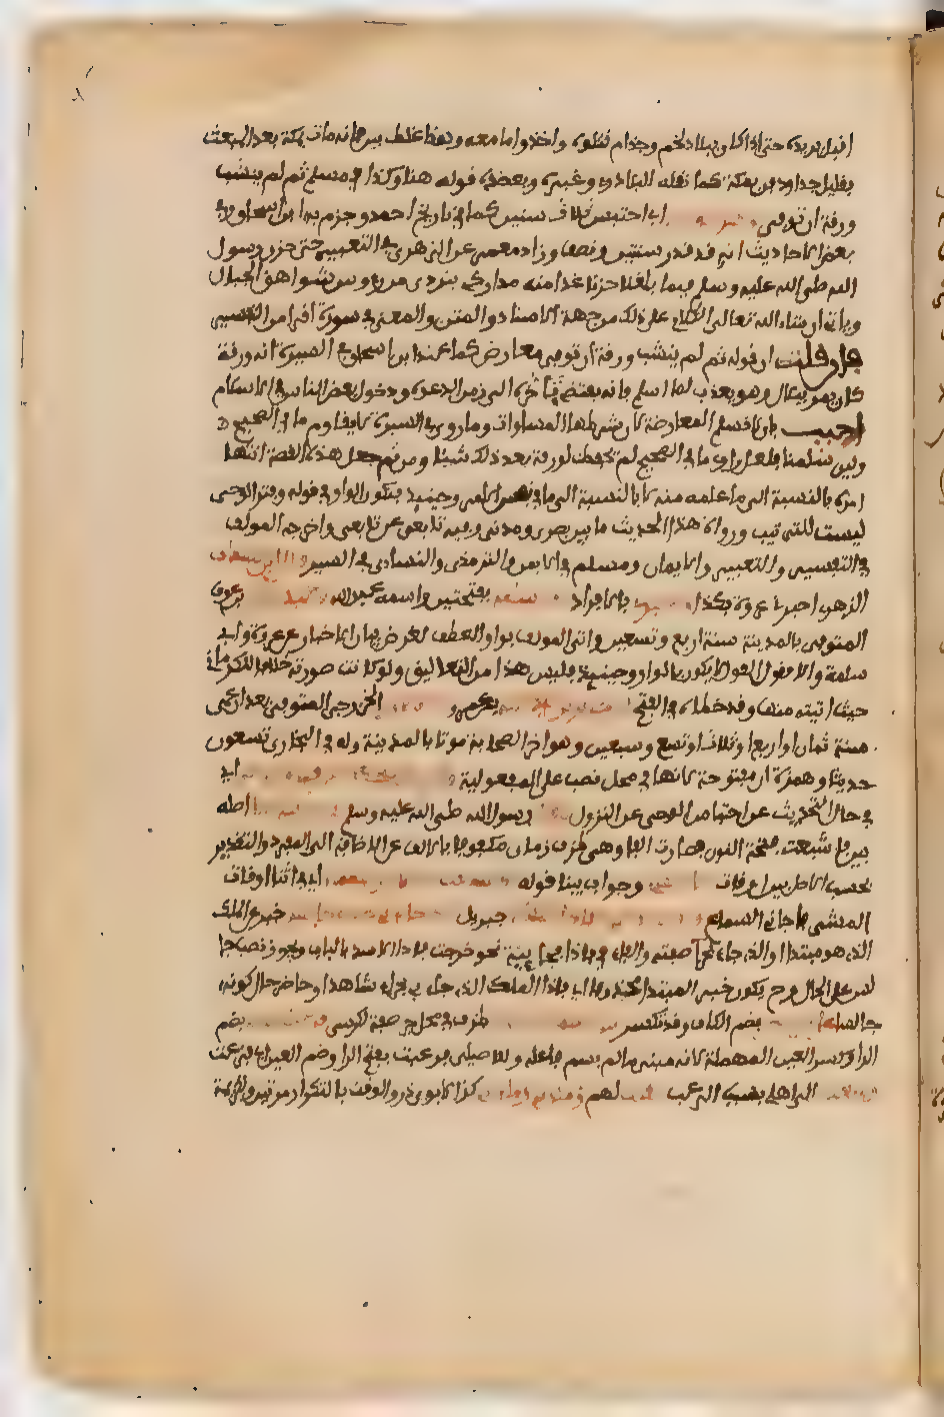 اقبل يريده حتى اذا كان ببلاد لخم وجذام قتلوه واخذوا ما معه وهذا غلط بين فانه مات بمكة بعد المبعث
بقليل جدا ودفن بمكة كما نقله البلاذري وغيره ويعضده قوله هنا وكذا في مسلم ثم لم ينشب
ورقة ان توفي اي احتبس ثلاث سنين كما في تاريخ احمد وجزم به ابن اسحاق وفي
بعض الاحاديث انه قدر سنتين ونصف وزاد معمر عن الزهري في التعبير حتى حزن رسول
الله صلى الله عليه وسلم فيما بلغنا حزنا غدا منه مرارا كي يتردى من رءوس شواهق الجبال
وياتي ان شاء الله تعالى الكلام على ذلك من جهة الاسناد والمتن والمعنى في سورة اقرا من التفسير
فان قلت ان قوله ثم لم ينشب ورقة ان توفي معارض بما عند ابن اسحاق في السيرة ان ورقة
كان يمر ببلال وهو يعذب لما اسلم فانه يقتضي تاخره الى زمن الدعوة ودخول بعض الناس في الاسلام
اجيب بانا لا نسلم المعارضة لان شرطها المساواة وما روي في السيرة لا يقاوم ما في الصحيح
ولين سلمنا فلعل راوي ما في الصحيح لم يحفظ لورقة بعد ذلك شيئا ومن ثم جعل هذه القصة انتهاء
امره بالنسبة الى ما علمه منه لا بالنسبة الى ما في نفس الامر وحينيذ فتكون الواو في قوله وفتر الوحي
ليست للترتيب ورواة هذا الحديث ما بين بصري ومدني وفيه تابعي عن تابعي واخرجه المولف
في التفسير والتعبير والايمان ومسلم في الايمان والترمذي والنساءي في التفسير قال ابن شهاب
الزهري اخبرنا عروة بكذا بالافراد سلمة بفتحتين واسمه عبد الله بن عوف
المتوفى بالمدينة سنة اربع وتسعين واتى المولف بواو العطف لغرض بيان الاخبار عن عروة وابي
سلمة والا فمقول القول لا يكون بالواو وحينيذ فليس هذا من التعاليق ولو كانت صورته خلافا للكرماني
حيث اثبته منها وقد خطاه في الفتح بن عمرو الخزرجي المتوفى بعد ان عمي
سنة ثمان او اربع او ثلاث او تسع وسبعين وهو اخر الصحابة موتا بالمدينة وله في البخاري تسعون
حديثا وهمزة ان مفتوحة لانها في محل نصب على المفعولية اي
في حال التحديث عن احتباس الوحي عن النزول رسول الله صلى الله عليه وسلم اصله
بين فاشبعت فتحة النون فصارت الفا وهي ظرف زمان مكفوف بالالف عن الاضافة الى المفرد والتقدير
بحسب الاصل بين اوقات وجواب بينا قوله اي في اثنا اوقات
المشي فاجاني السماع جبريل خبر عن الملك
الذي هو مبتدا والذي جاءني صفته والفاء في فاذا فجاءيية نحو خرجت فاذا الاسد بالباب ويجوز نصب جا
لس على الحال وح يكون خبر المبتدا محذوفا اي فاذا الملك الذي جاءني بحراء شاهدا وحاضر حال كونه
جالسا بضم الكاف وقد تكسر ظرف في محل جر صفة لكرسي بضم
الراء وكسر العين المهملة كانه مبني ما لم يسم فاعله وللاصيلي فرعبت بفتح الراء وضم العين اي فزعت
الى اهلي بسبب الرعب لهم كذا لابوي ذر والوقت بالتكرار مرتين ولكريمة